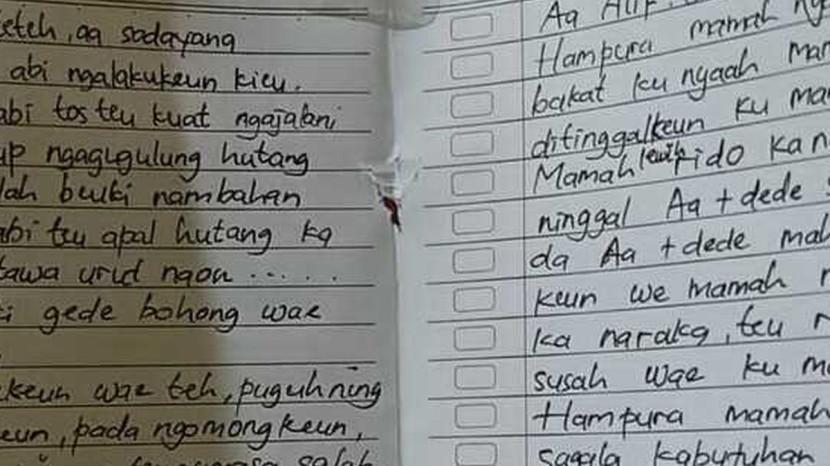 eteh, aa sadayang
abi ngalakukeun kieu.
abi tos teu kuat ngajalani
up ngagugulung hutang
lah beuki nambahan
abi teu apal hutang ka
tawa urid ngon ......
i gede bohong wae
keun wae teh, puguh ning
eun, pada ngomongkeun,
salah
Aa Alif.
Hampura mamah
bakat ku nyaah mam
ditinggalkeun ku ma
Mamah leuih rido kan
ninggal Aa + dede
da Aa + dede mah
keun we mamah
ka naraka, teu
susah wae ku m
Hampura mamah
sagala kabutuhan